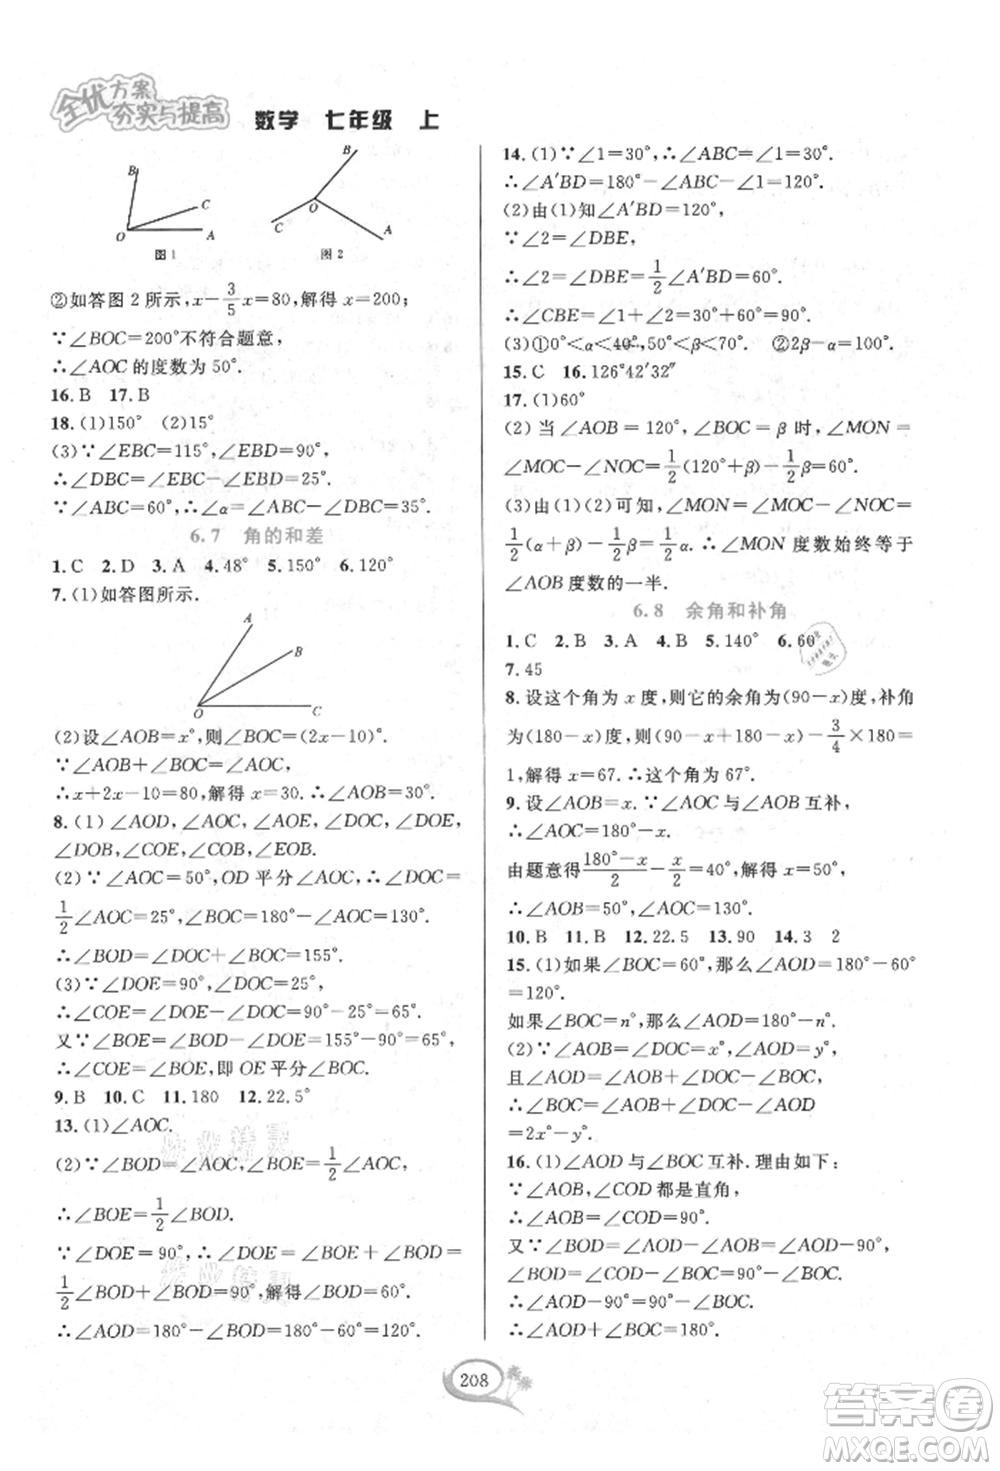 全优方案
夯实与提高
数学 七年级 上
B
C
O
A
图 1
B
O
C
A
图 2
②如答图 2 所示,x－3/5x＝80,解得 x＝200;
∵∠BOC＝200°不符合题意,
∴∠AOC 的度数为 50°.
16.B 17.B
18.(1)150° (2)15°
(3)∵∠EBC＝115°,∠EBD＝90°,
∴∠DBC＝∠EBC－∠EBD＝25°.
∵∠ABC＝60°,∴∠α＝∠ABC－∠DBC＝35°.
6.7 角的和差
1.C 2.D 3.A 4.48° 5.130° 6.120°
7.(1)如答图所示.
A
B
O
C
(2)设∠AOB＝x°,则∠BOC＝(2x－10)°.
∵∠AOB＋∠BOC＝∠AOC,
∴x＋2x－10＝80,解得 x＝30.∴∠AOB＝30°.
8.(1)∠AOD,∠AOC,∠AOE,∠DOC,∠DOE,
∠DOB,∠COE,∠COB,∠EOB.
(2)∵∠AOC＝50°,OD 平分∠AOC,∴∠DOC＝
1/2∠AOC＝25°,∠BOC＝180°－∠AOC＝130°.
∴∠BOD＝∠DOC＋∠BOC＝155°.
(3)∵∠DOE＝90°,∠DOC＝25°,
∴∠COE＝∠DOE－∠DOC＝90°－25°＝65°.
又∵∠BOE＝∠BOD－∠DOE＝155°－90°＝65°,
∴∠COE＝∠BOE,即 OE 平分∠BOC.
9.B 10.C 11.180 12.22.5°
13.(1)∠AOC.
(2)∵∠BOD＝∠AOC,∠BOE＝1/2∠AOC,
∴∠BOE＝1/2∠BOD.
∵∠DOE＝90°,∴∠DOE＝∠BOE＋∠BOD＝
1/2∠BOD＋∠BOD＝90°,解得∠BOD＝60°.
∴∠AOD＝180°－∠BOD＝180°－60°＝120°.
14.(1)∵∠1＝30°,∴∠ABC＝∠1＝30°.
∴∠A′BD＝180°－∠ABC－∠1＝120°.
(2)由(1)知∠A′BD＝120°,
∵∠2＝∠DBE,
∴∠2＝∠DBE＝1/2∠A′BD＝60°.
∴∠CBE＝∠1＋∠2＝30°＋60°＝90°.
(3)①0°＜α＜40°,50°＜β＜70°. ②2β－α＝100°.
15.C 16.126°42′32″
17.(1)60°
(2)当∠AOB＝120°,∠BOC＝β 时,∠MON＝
∠MOC－∠NOC＝1/2(120°＋β)－1/2β＝60°.
(3)由(1)(2)可知,∠MON＝∠MOC－∠NOC＝
1/2(α＋β)－1/2β＝1/2α.∴∠MON 度数始终等于
∠AOB 度数的一半.
6.8 余角和补角
1.C 2.B 3.A 4.B 5.140° 6.60
7.45
8.设这个角为 x 度,则它的余角为(90－x)度,补角
为(180－x)度,则(90－x＋180－x)－3/4×180＝
1,解得 x＝67.∴这个角为 67°.
9.设∠AOB＝x.∵∠AOC 与∠AOB 互补,
∴∠AOC＝180°－x.
由题意得180°－x/2－x/2＝40°,解得 x＝50°.
∴∠AOB＝50°,∠AOC＝130°.
10.B 11.B 12.22.5 13.90 14.3 2
15.(1)如果∠BOC＝60°,那么∠AOD＝180°－60°
＝120°.
如果∠BOC＝n°,那么∠AOD＝180°－n°.
(2)∵∠AOB＝∠DOC＝x°,∠AOD＝y°,
且∠AOD＝∠AOB＋∠DOC－∠BOC,
∴∠BOC＝∠AOB＋∠DOC－∠AOD＝
2x°－y°.
16.(1)∠AOD 与∠BOC 互补.理由如下:
∵∠AOB,∠COD 都是直角,
∴∠AOB＝∠COD＝90°.
又∵∠BOD＝∠AOD－∠AOB＝∠AOD－90°,
∠BOD＝∠COD－∠BOC＝90°－∠BOC,
∴∠AOD－90°＝90°－∠BOC.
∴∠AOD＋∠BOC＝180°.
208
答案卷
MXQE.COM